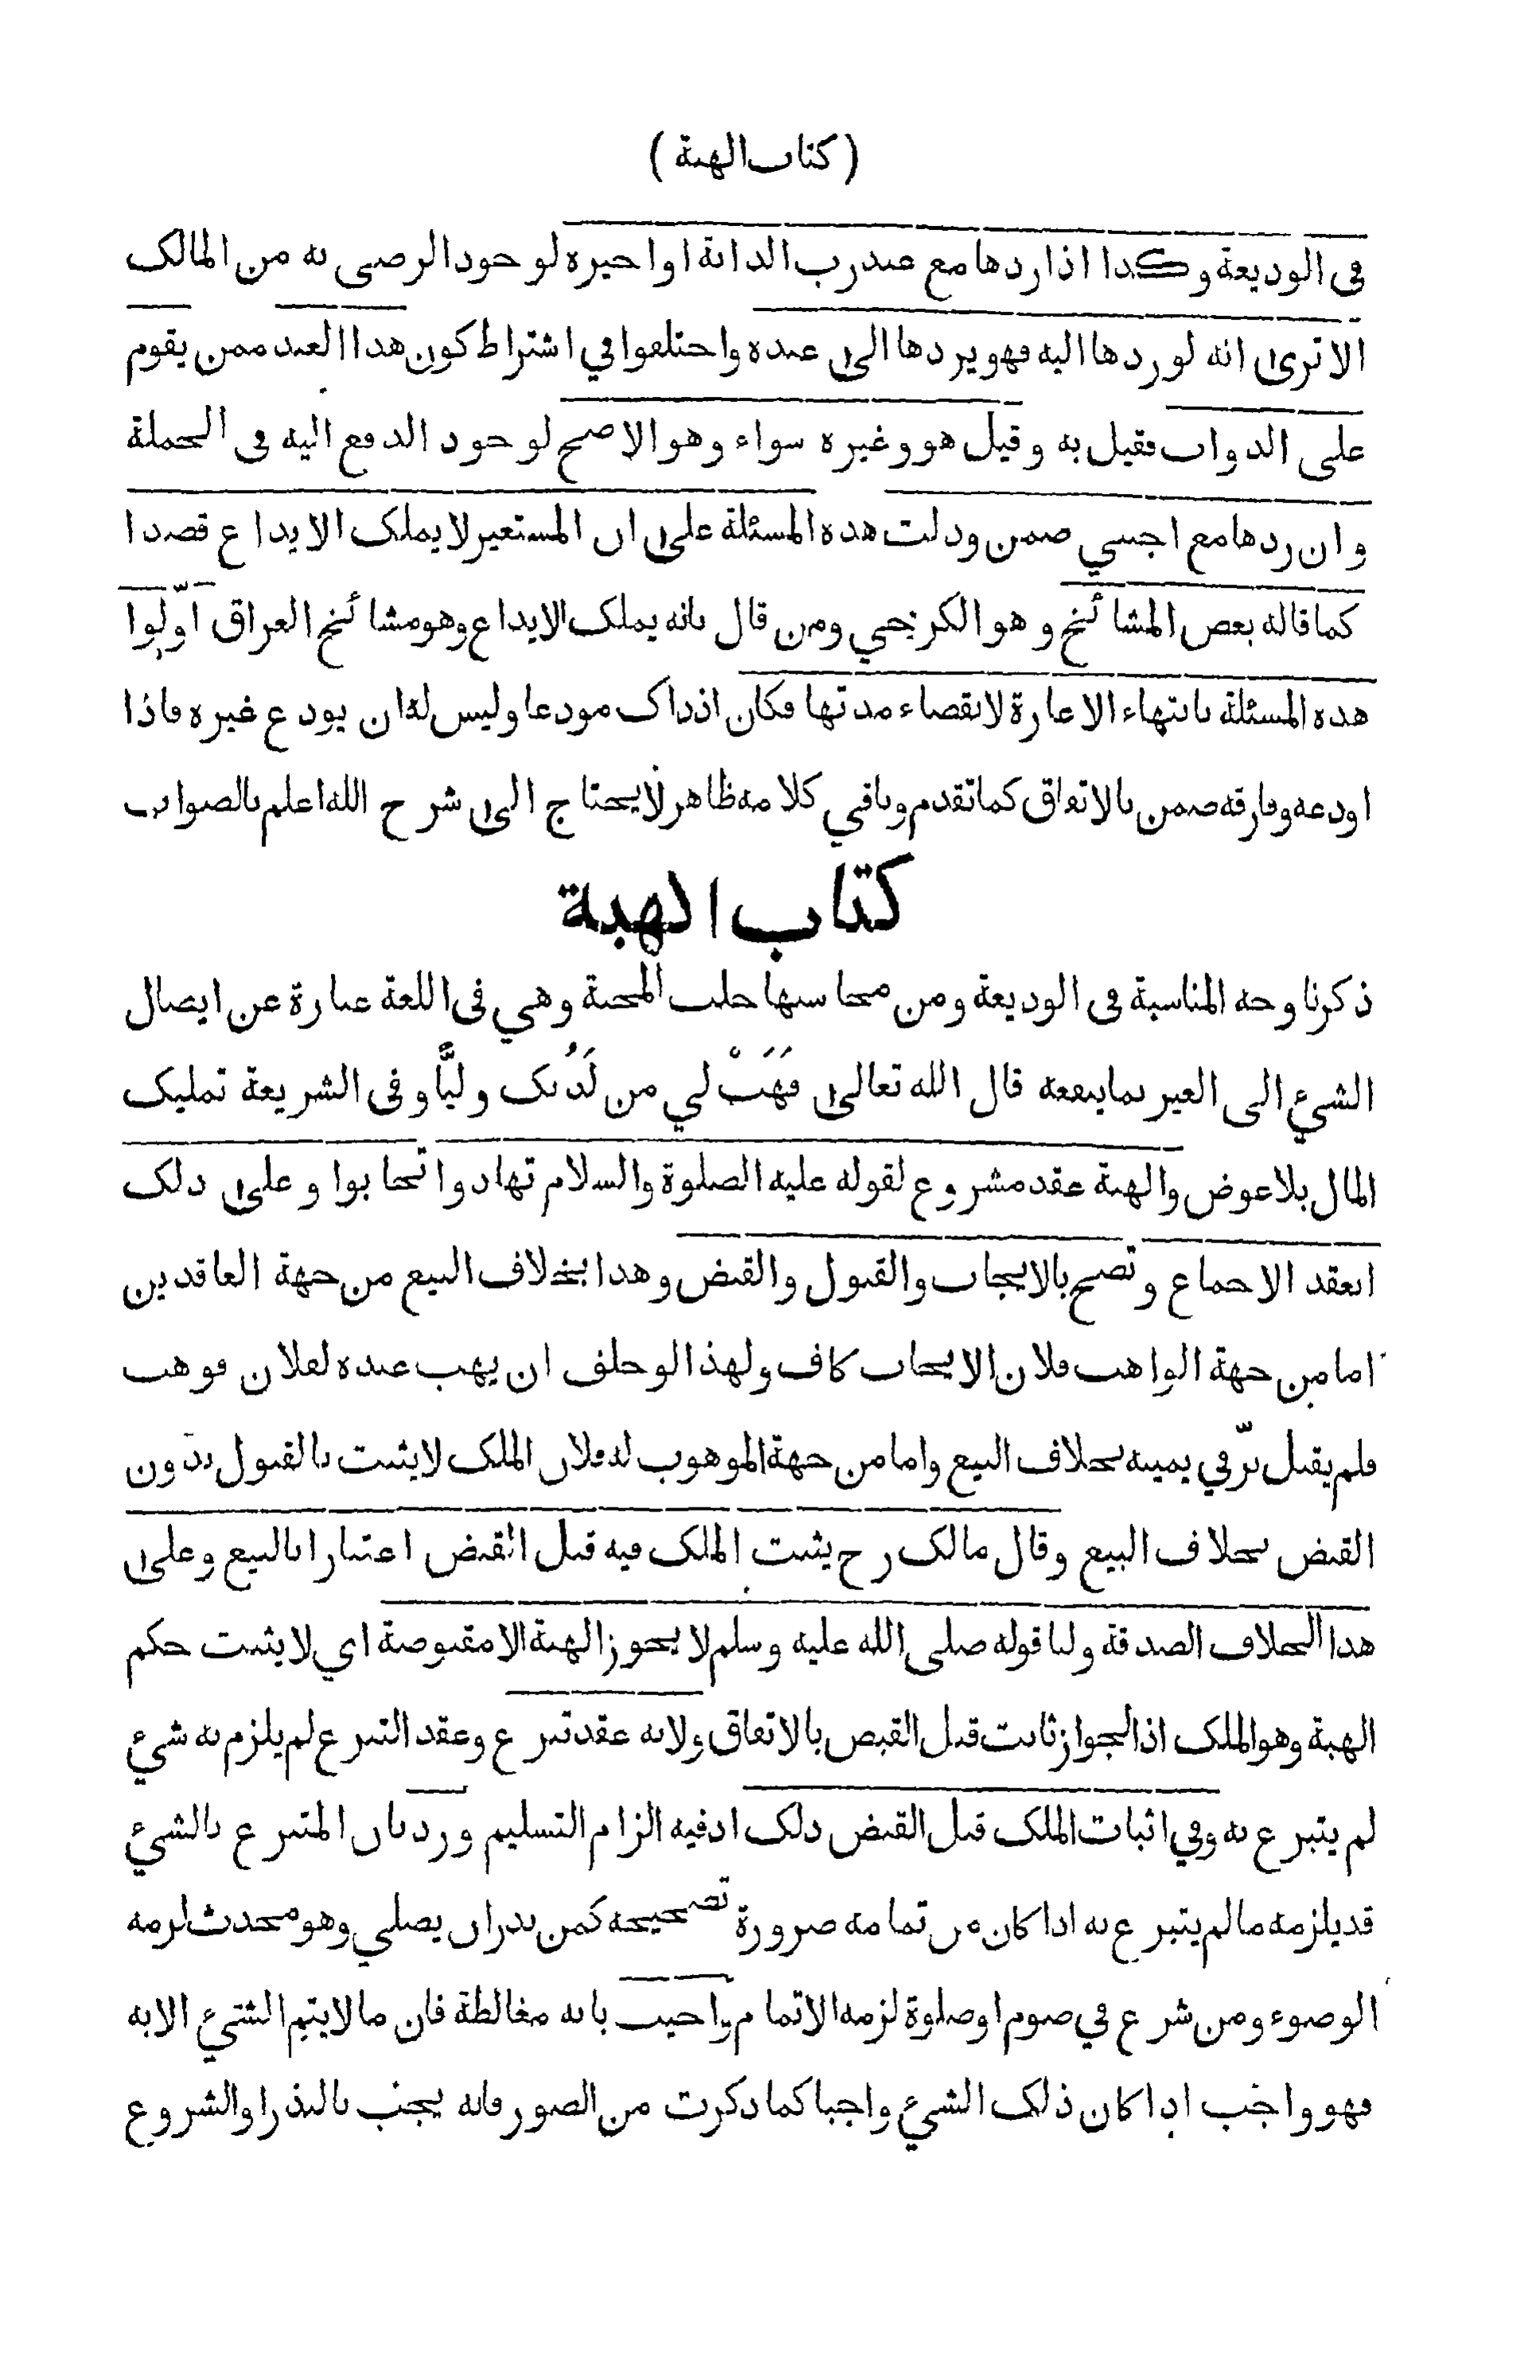 ( كتاب الهبة )
في الوديعة وكذا اذا ردها مع عبد رب الدابة او اجيره لوجود الرضى به من المالك
الا ترى انه لو ردها اليه فهو يردها الى عبده واختلفوا في اشتراط كون هذا العبد ممن يقوم
على الدواب فقيل به وقيل هو وغيره سواء وهو الاصح لوجود الدفع اليه في الجملة
وان ردها مع اجنبي ضمن ودلت هذه المسئلة على ان المستعير لا يملك الايداع قصدا
كما قاله بعض المشائخ وهو الكرخي ومن قال بانه يملك الايداع وهو مشائخ العراق اوّلوا
هذه المسئلة بانتهاء الاعارة لانقضاء مدتها فكان اذ ذاك مودعا وليس له ان يودع غيره فاذا
اودعه وفارقه ضمن بالاتفاق كما تقدم وباقي كلامه ظاهر لا يحتاج الى شرح الله اعلم بالصواب
كتاب الهبة
ذكرنا وجه المناسبة في الوديعة ومن محاسنها جلب المحبة وهي في اللغة عبارة عن ايصال
الشيء الى الغير بما ينفعه قال الله تعالى فَهَبْ لي من لَدُنك وليًّا وفي الشريعة تمليك
المال بلا عوض والهبة عقد مشروع لقوله عليه الصلوة والسلام تهادوا تحابوا وعلى ذلك
انعقد الاجماع وتصح بالايجاب والقبول والقبض وهذا بخلاف البيع من جهة العاقدين
اما من جهة الواهب فلان الايجاب كاف ولهذا لو حلف ان يهب عبده لفلان فوهب
فلم يقبل برّ في يمينه بخلاف البيع واما من جهة الموهوب له فلان الملك لا يثبت بالقبول بدون
القبض بخلاف البيع وقال مالك رح يثبت الملك فيه قبل القبض اعتبارا بالبيع وعلى
هذا الخلاف الصدقة ولنا قوله صلى الله عليه وسلم لا يجوز الهبة الا مقبوضة اي لا يثبت حكم
الهبة وهو الملك اذ الجواز ثابت قبل القبض بالاتفاق ولانه عقد تبرع وعقد التبرع لم يلزم به شيء
لم يتبرع به وفي اثبات الملك قبل القبض ذلك اذ فيه الزام التسليم ورد بان المتبرع بالشيء
قد يلزمه ما لم يتبرع به اذا كان من تمامه ضرورة تصحيحه كمن نذر ان يصلي وهو محدث لزمه
الوضوء ومن شرع في صوم او صلوة لزمه الاتمام واجيب بانه مغالطة فان ما لا يتم الشيء الا به
فهو واجب اذا كان ذلك الشيء واجبا كما ذكرت من الصور فانه يجب بالنذر او الشروع